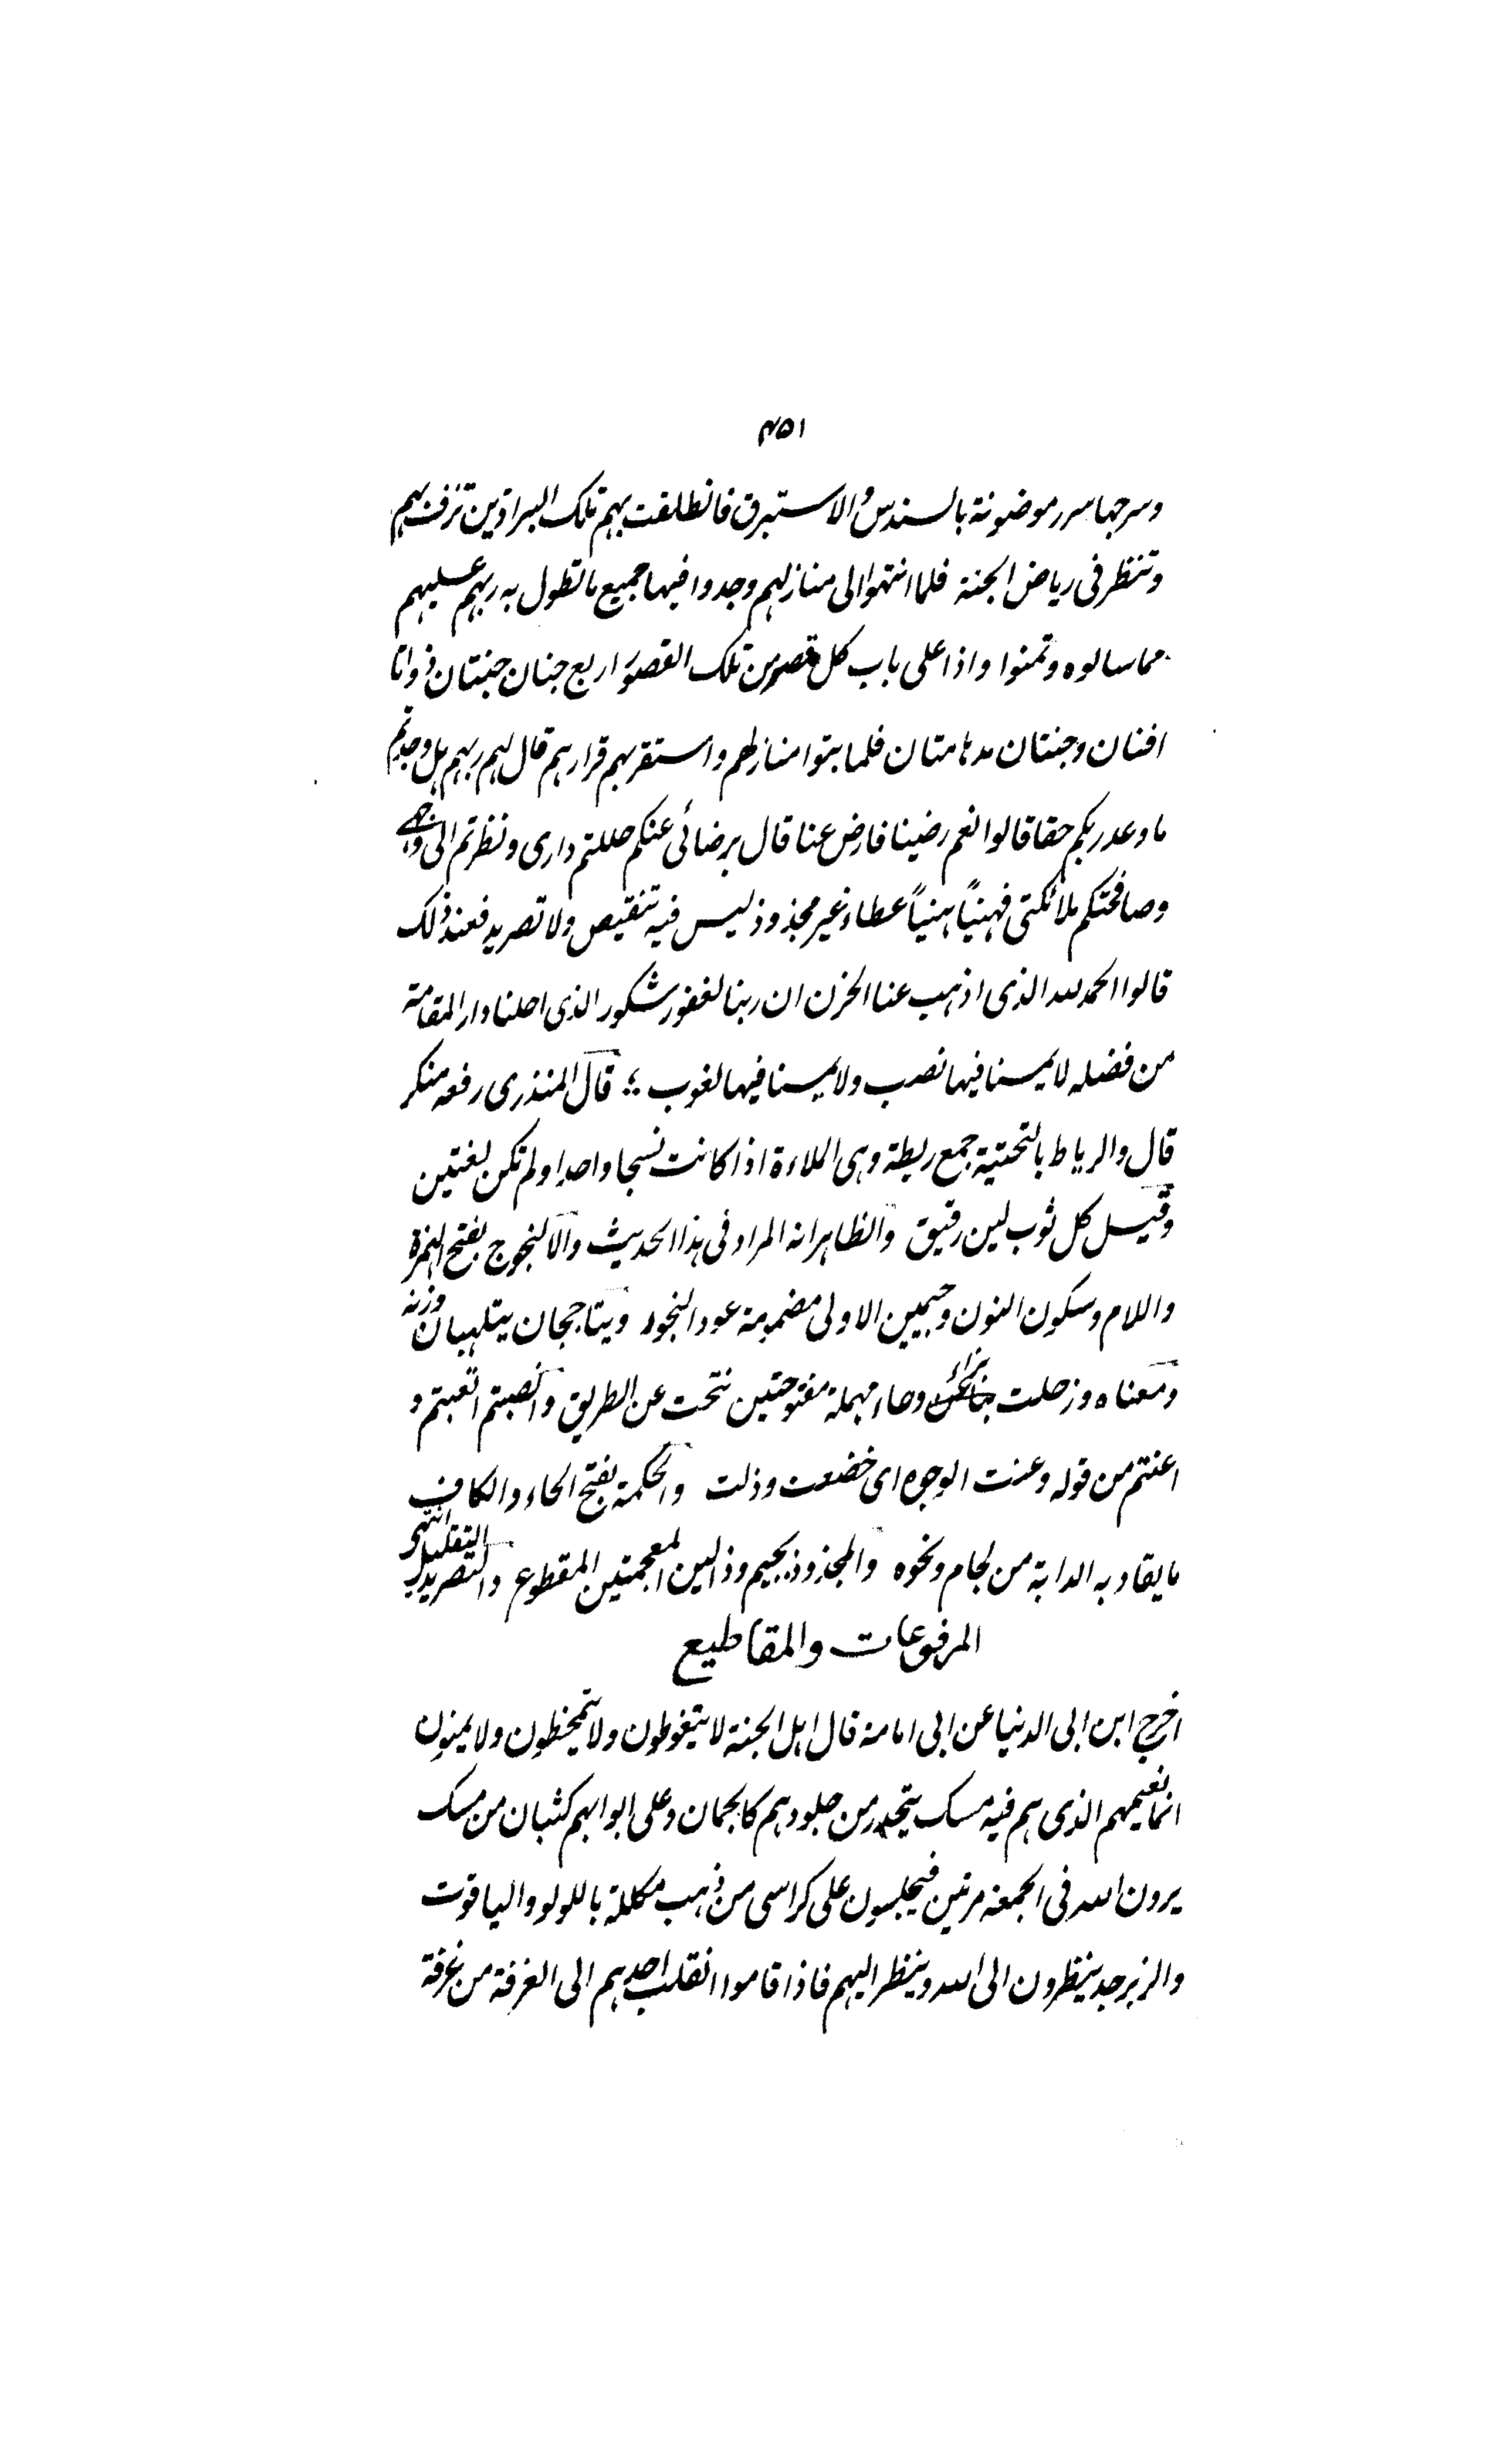 ۴۵۱
وسرجها سرر موضونة بالسندس والاستبرق فانطلقت بهم تلك البراذين تزف بهم
وتنظر فی ریاض الجنة فلما انتهوا الی منازلهم وجدوا فیها جمیع ما تطول به ربهم علیهم
مما سالوه وتمنوا واذا علی باب کل قصر من تلك القصور اربع جنان جنتان ذواتا
افنان وجنتان مدهامتان فلما تبوا منازلهم واستقر بهم قرارهم قال لهم ربهم هل وجدتم
ما وعد ربکم حقا قالوا نعم رضینا فارض عنا قال برضائی عنکم حللتم داری ونظرتم الی وجهی
وصافحتکم ملائکتی فهنیًا هنیًا عطاء غیر مجذوذ لیس فیه تنقیص ولا تصرید فعند ذلك
قالوا الحمد لله الذی اذهب عنا الحزن ان ربنا لغفور شکور الذی احلنا دار المقامة
من فضله لا یمسنا فیها نصب ولا یمسنا فیها لغوب ؛ قال المنذری رفعه منکر
قال والریاط بالتحتیة جمع ریطة وهی الملاءة اذا کانت نسجا واحدا ولم تکن لفتین
وقیل کل ثوب لین رقیق والظاهر انه المراد فی هذا الحدیث والالنجوج بفتح الهمزة
واللام وسکون النون وجیمین الاولی مضمومة عود البخور ویتاججان یتلهبان وزنه
ومعناه وزحلت بزاء وحاء مهملة مفتوحتین تنحت عن الطریق وانصبتم اتعبتم و
اعنتم من قوله وعنت الوجوه ای خضعت وذلت والحکمة بفتح الحاء والکاف
ما یقاد به الدابة من لجام ونحوه والمجذوذ بجیم وذالین المعجمتین المقطوع والتصرید التقلیل انتهی
المرفوعات والمقاطیع
اخرج ابن ابی الدنیا عن ابی امامة قال اهل الجنة لا یتغوطون ولا یتمخطون ولا یمنون
انما نعیمهم الذی هم فیه مسك یتحدر من جلودهم کالجمان وعلی ابوابهم کثبان من مسك
یرون الله فی الجمعة مرتین فیجلسون علی کراسی من ذهب مکللة باللولو والیاقوت
والزبرجد ینظرون الی الله وینظر الیهم فاذا قاموا انقلب احدهم الی الغرفة من غرفة